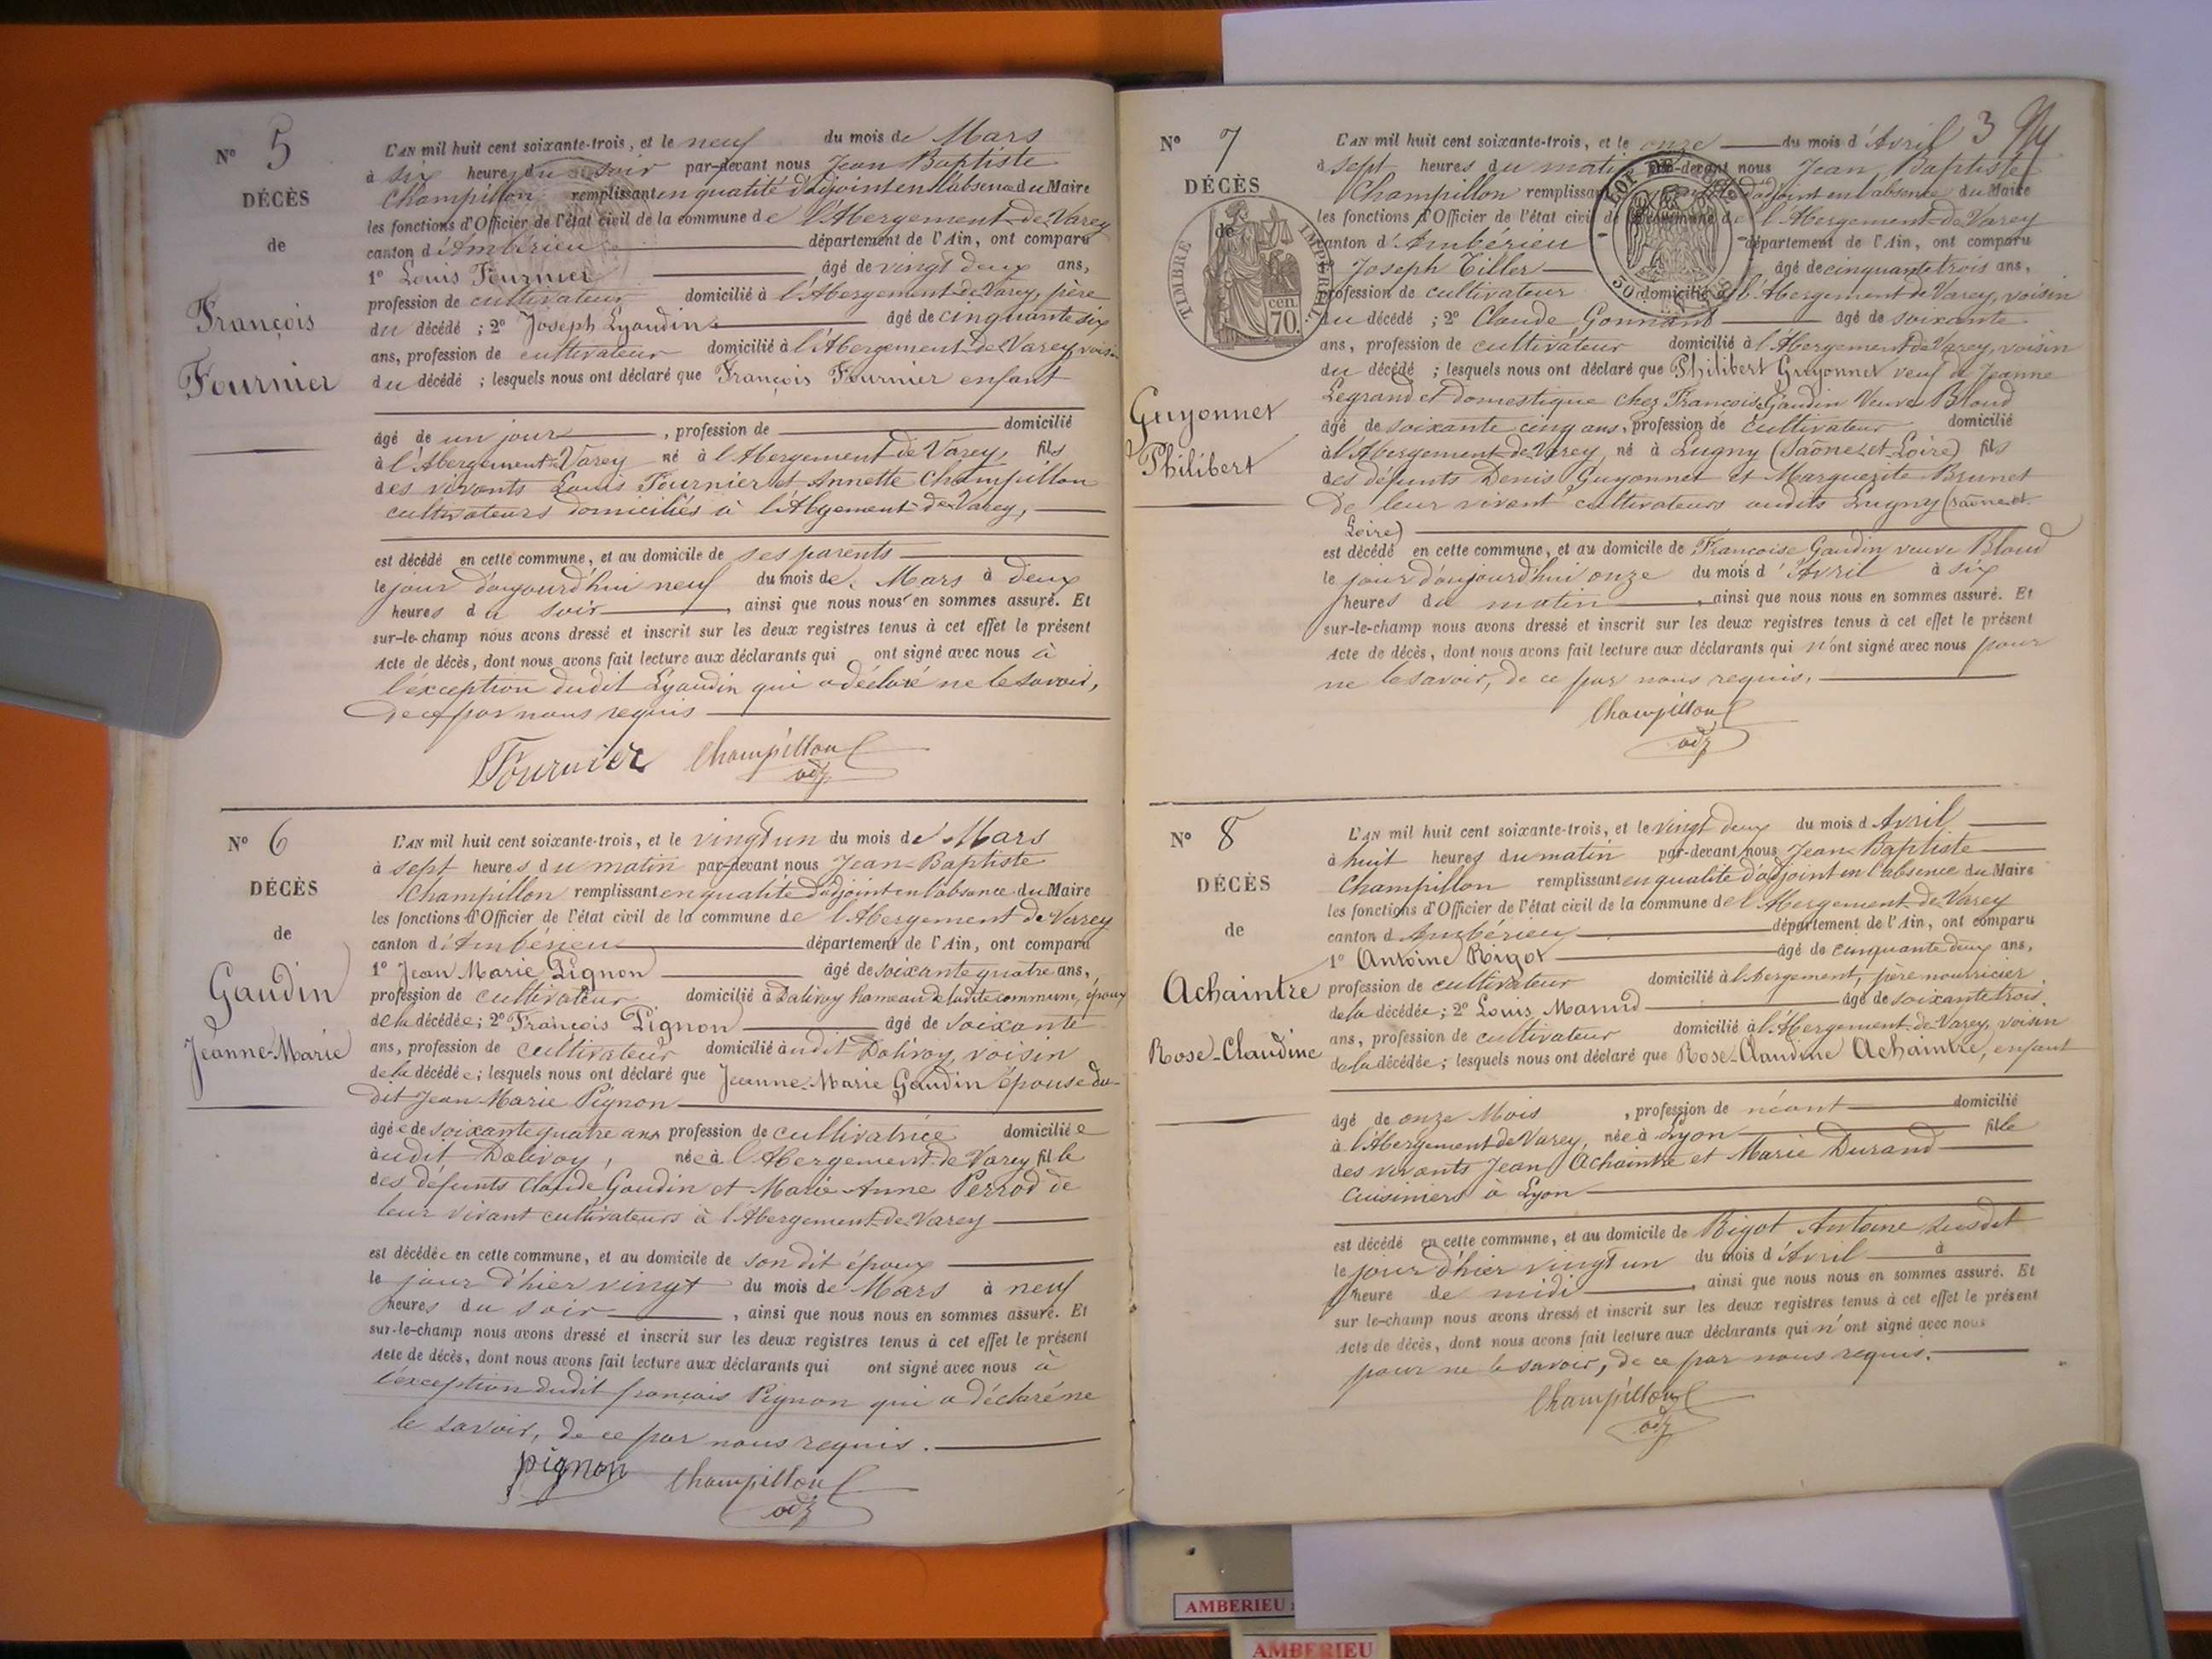 N° 5
DÉCÈS
de
François
Fournier
L'AN mil huit cent soixante-trois, et le neuf du mois de Mars
à six heures du soir par-devant nous Jean Baptiste
Champillon remplissant en qualité d'adjoint en l'absence du Maire
les fonctions d'Officier de l'état civil de la commune de l'Abergement-de-Varey
canton d'Ambérieu département de l'Ain, ont comparu
1° Louis Fournier âgé de vingt deux ans,
profession de cultivateur domicilié à l'Abergement-de-Varey, père
du décédé ; 2° Joseph Lyaudin âgé de cinquante six
ans, profession de cultivateur domicilié à l'Abergement-de-Varey, voisin
du décédé ; lesquels nous ont déclaré que François Fournier enfant
âgé de un jour, profession de domicilié
à l'Abergement-de-Varey né à l'Abergement de Varey, fils
des vivants Louis Fournier et Annette Champillon
cultivateurs domiciliés à l'Abgement-de-Varey,
est décédé en cette commune, et au domicile de ses parents
le jour d'aujourd'hui neuf du mois de Mars à deux
heures du soir, ainsi que nous nous en sommes assuré. Et
sur-le-champ nous avons dressé et inscrit sur les deux registres tenus à cet effet le présent
Acte de décès, dont nous avons fait lecture aux déclarants qui ont signé avec nous à
l'exception dudit Lyaudin qui a déclaré ne le savoir,
de ce par nous requis
Fournier Champillon
adj
N° 6
DÉCÈS
de
Gaudin
Jeanne-Marie
L'AN mil huit cent soixante-trois, et le vingt un du mois de Mars
à sept heures du matin par-devant nous Jean-Baptiste
Champillon remplissant en qualité d'adjoint en l'absence du Maire
les fonctions d'Officier de l'état civil de la commune de l'Abergement-de-Varey
canton d'Ambérieu département de l'Ain, ont comparu
1° Jean Marie Pignon âgé de soixante quatre ans,
profession de cultivateur domicilié à Dalivoy hameau de ladite commune, époux
de la décédée ; 2° François Pignon âgé de soixante
ans, profession de cultivateur domicilié audit Dalivoy, voisin
de la décédée ; lesquels nous ont déclaré que Jeanne-Marie Gaudin épouse du-
dit Jean Marie Pignon
âgée de soixante quatre ans profession de cultivatrice domiciliée
audit Dalivoy, née à l'Abergement-de-Varey fille
des défunts Claude Gaudin et Marie Anne Perrod de
leur vivant cultivateurs à l'Abergement-de-Varey
est décédée en cette commune, et au domicile de son dit époux
le jour d'hier vingt du mois de Mars à neuf
heures du soir, ainsi que nous nous en sommes assuré. Et
sur-le-champ nous avons dressé et inscrit sur les deux registres tenus à cet effet le présent
Acte de décès, dont nous avons fait lecture aux déclarants qui ont signé avec nous à
l'exception dudit françois Pignon qui a déclaré ne
le savoir, de ce par nous requis.
pignon Champillon
adj
3
N° 7
DÉCÈS
de
TIMBRE IMPÉRIAL
70 cen
Guyonnet
Philibert
L'AN mil huit cent soixante-trois, et le onze du mois d'Avril
à sept heures du matin par-devant nous Jean Baptiste
Champillon remplissant d'adjoint en l'absence du Maire
les fonctions d'Officier de l'état civil de la commune de l'Abergement-de-Varey
canton d'Ambérieu département de l'Ain, ont comparu
Joseph Tiller âgé de cinquante trois ans,
profession de cultivateur domicilié à l'Abergement de Varey, voisin
du décédé ; 2° Claude Gonnant âgé de soixante
ans, profession de cultivateur domicilié à l'Abergement de Varey, voisin
du décédé ; lesquels nous ont déclaré que Philibert Guyonnet veuf de Jeanne
Legrand et domestique chez Françoise Gaudin Veuve Bloud
âgé de soixante cinq ans, profession de cultivateur domicilié
à l'Abergement-de-Varey, né à Lugny (Saône et Loire) fils
des défunts Denis Guyonnet et Marguerite Brunet
de leur vivant cultivateurs audits Lugny (Saône et
Loire)
est décédé en cette commune, et au domicile de Françoise Gaudin veuve Bloud
le jour d'aujourd'hui onze du mois d'Avril à six
heures du matin, ainsi que nous nous en sommes assuré. Et
sur-le-champ nous avons dressé et inscrit sur les deux registres tenus à cet effet le présent
Acte de décès, dont nous avons fait lecture aux déclarants qui n'ont signé avec nous pour
ne le savoir, de ce par nous requis.
Champillon
adj
N° 8
DÉCÈS
de
Achaintre
Rose-Claudine
L'AN mil huit cent soixante-trois, et le vingt deux du mois d Avril
à huit heures du matin par-devant nous Jean-Baptiste
Champillon remplissant en qualité d'adjoint en l'absence du Maire
les fonctions d'Officier de l'état civil de la commune de l'Abergement-de-Varey
canton d Ambérieu département de l'Ain, ont comparu
1° Antoine Bigot âgé de cinquante deux ans,
profession de cultivateur domicilié à l'Abergement, père nourricier
de la décédée ; 2° Louis Marnid âgé de soixante trois
ans, profession de cultivateur domicilié à l'Abergement-de-Varey, voisin
de la décédée ; lesquels nous ont déclaré que Rose-Claudine Achaintre, enfant
âgé de onze Mois, profession de néant domicilié
à l'Abergement de Varey, née à Lyon fille
des vivants Jean Achaintre et Marie Durand
Cuisiniers à Lyon
est décédé en cette commune, et au domicile de Bigot Antoine susdit
le jour d'hier vingt un du mois d'Avril à
heure de midi, ainsi que nous nous en sommes assuré. Et
sur le-champ nous avons dressé et inscrit sur les deux registres tenus à cet effet le présent
Acte de décès, dont nous avons fait lecture aux déclarants qui n'ont signé avec nous
pour ne le savoir, de ce par nous requis.
Champillon
adj
AMBERIEU
AMBERIEU